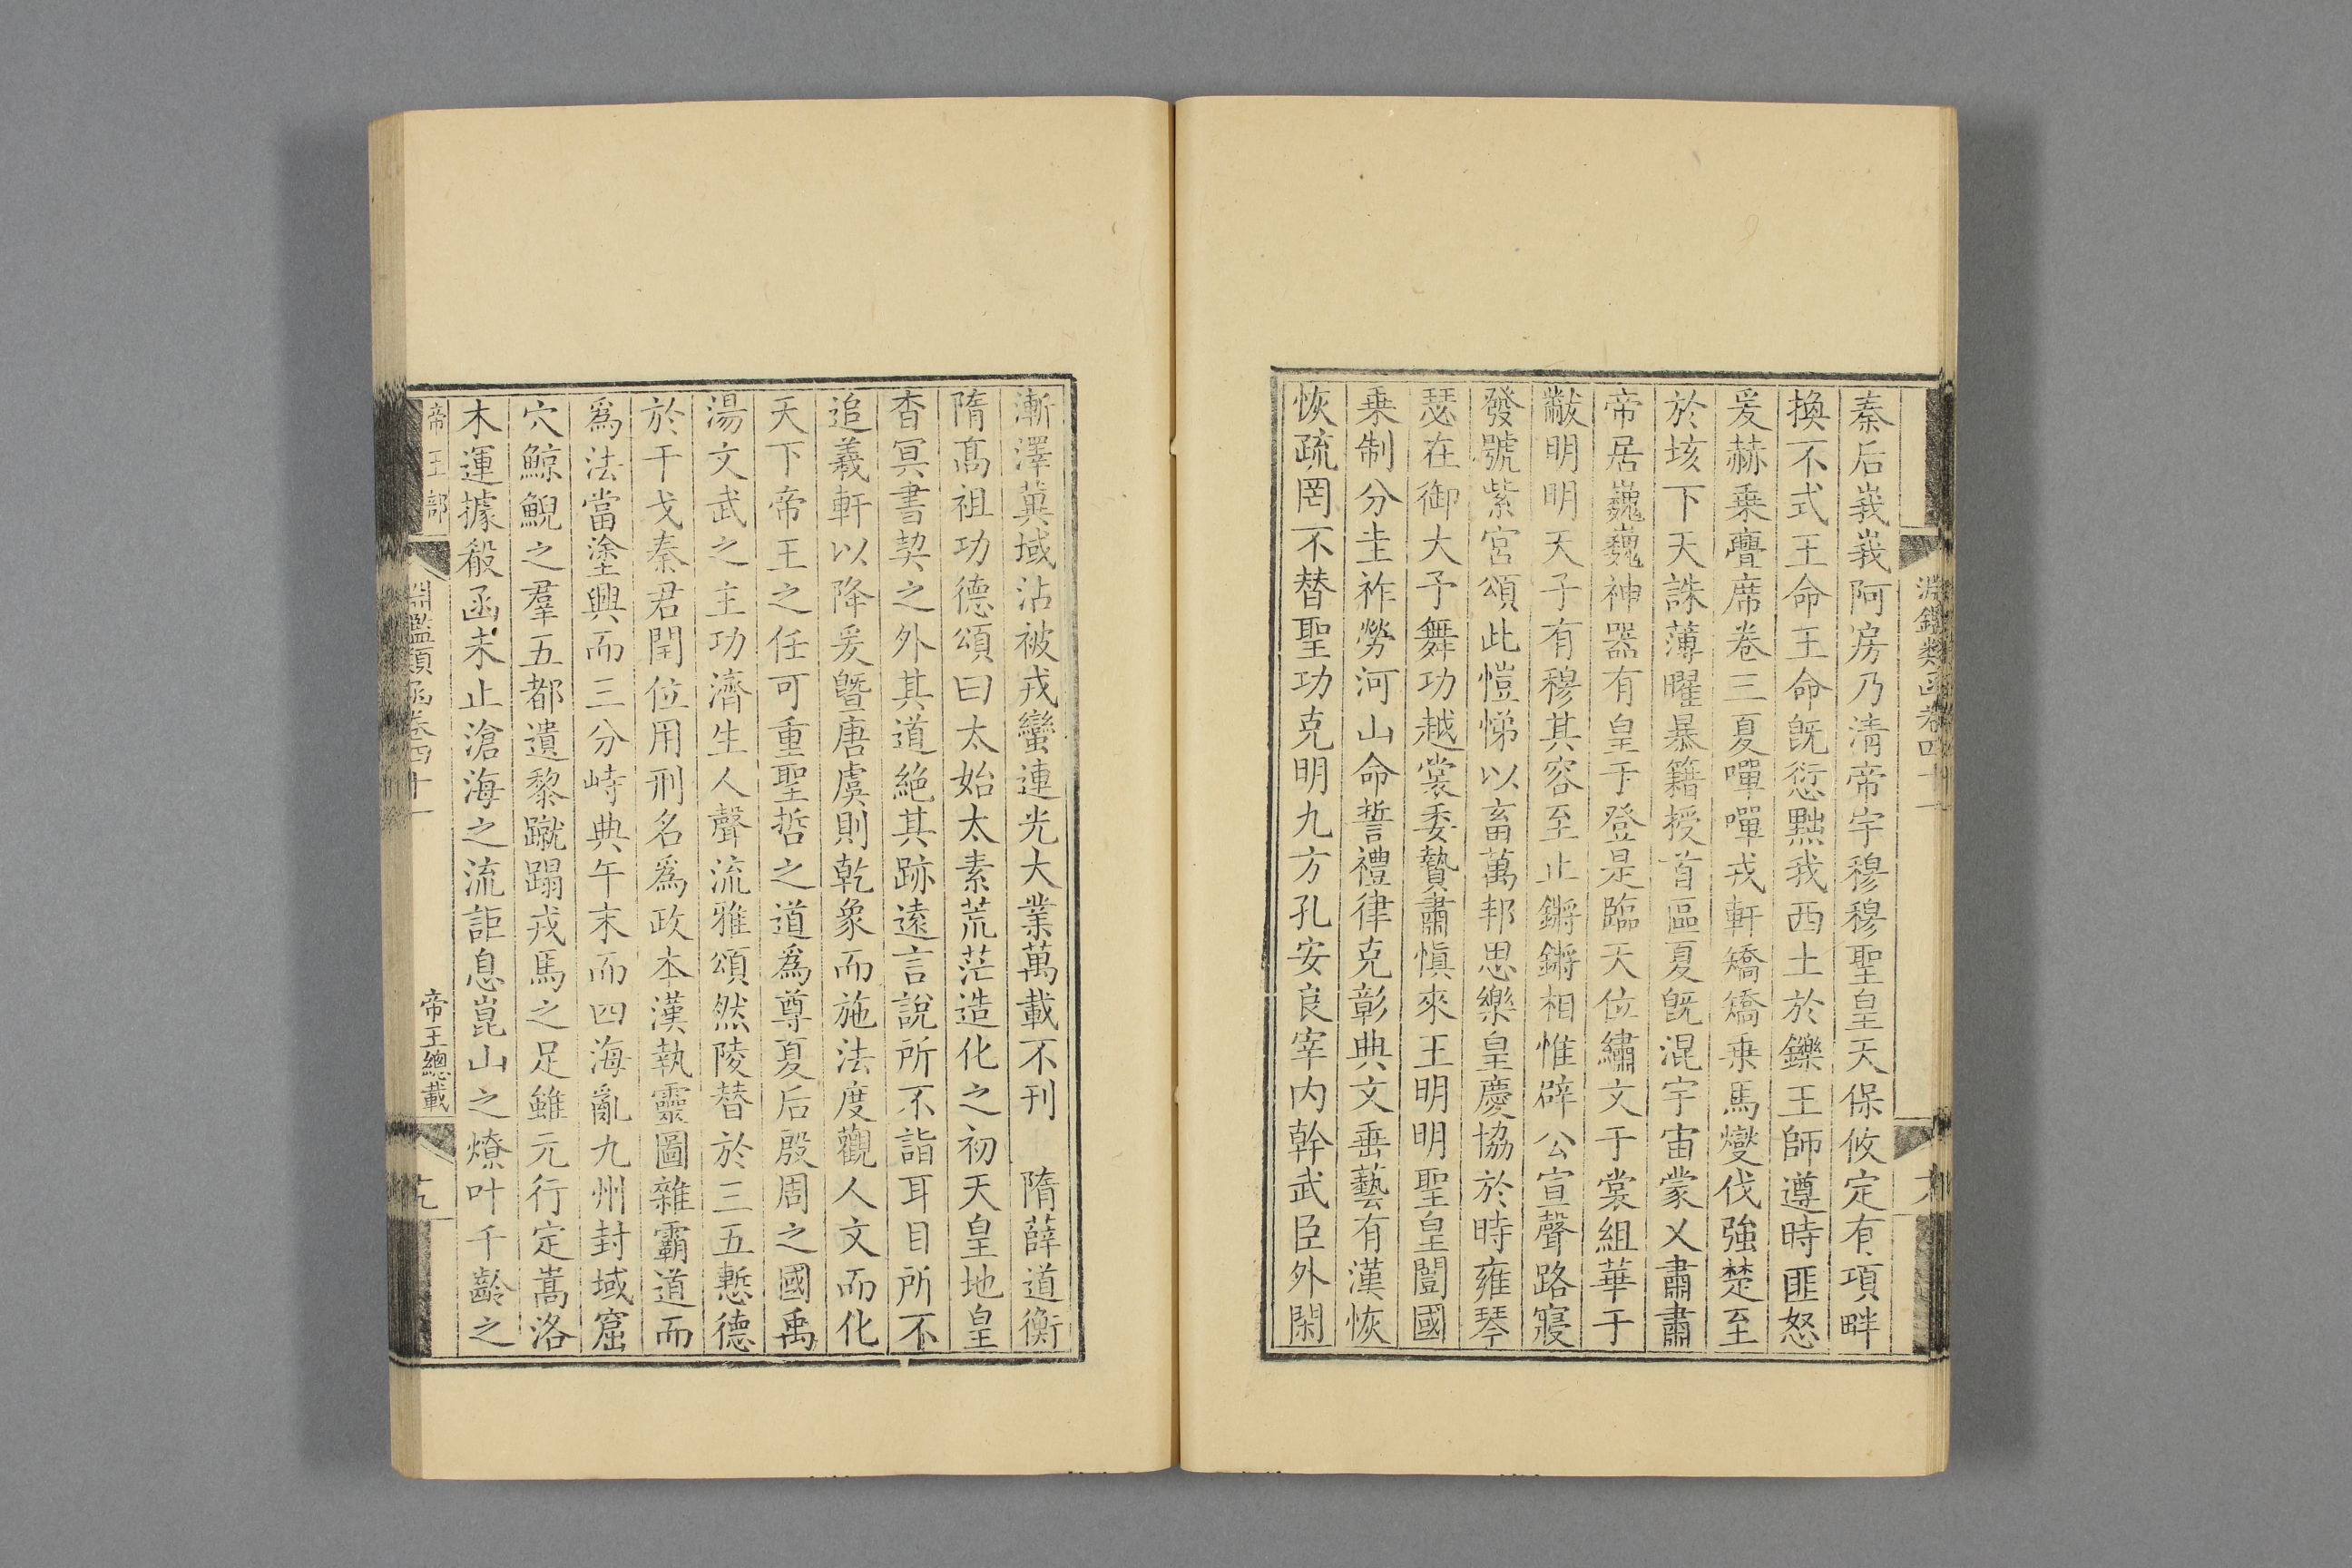 淵鑑類函卷四十一
秦后峩峩阿房乃清帝宇穆穆聖皇天保攸定有項畔
換不式王命王命旣愆黜我西土於鑠王師遵時匪怒
爰赫乗亹席卷三夏嘽嘽戎軒矯矯乗馬燮伐強楚至
於垓下天誅薄曜暴籍授首區夏旣混宇宙蒙乂肅肅
帝居巍巍神器有皇于登是臨天位繡文于裳組華于
黻明明天子有穆其容至止鏘鏘相惟辟公宣聲路寢
發號紫宮頌此愷悌以畜萬邦思樂皇慶協於時雍琴
瑟在御大予舞功越裳委贄肅慎來王明明聖皇闓國
乗制分圭祚勞河山命誓禮律克彰典文垂藝有漢恢
恢疏罔不替聖功克明九方孔安良宰内幹武臣外閑
漸澤冀域沾被戎蠻連光大業萬載不刊　隋薛道衡
隋髙祖功德頌曰太始太素荒茫造化之初天皇地皇
杳冥書契之外其道絶其跡遠言說所不詣耳目所不
追羲軒以降爰曁唐虞則乾象而施法度觀人文而化
天下帝王之任可重聖哲之道爲尊夏后殷周之國禹
湯文武之主功濟生人聲流雅頌然陵替於三五慙德
於干戈秦君閏位用刑名爲政本漢執靈圖雜霸道而
爲法當塗興而三分峙典午末而四海亂九州封域窟
穴鯨鯢之羣五都遺黎蹴蹋戎馬之足雖元行定嵩洛
木運據殽函未止滄海之流詎息崑山之燎叶千齡之
帝王部
淵鑑類函卷四十一
帝王總載